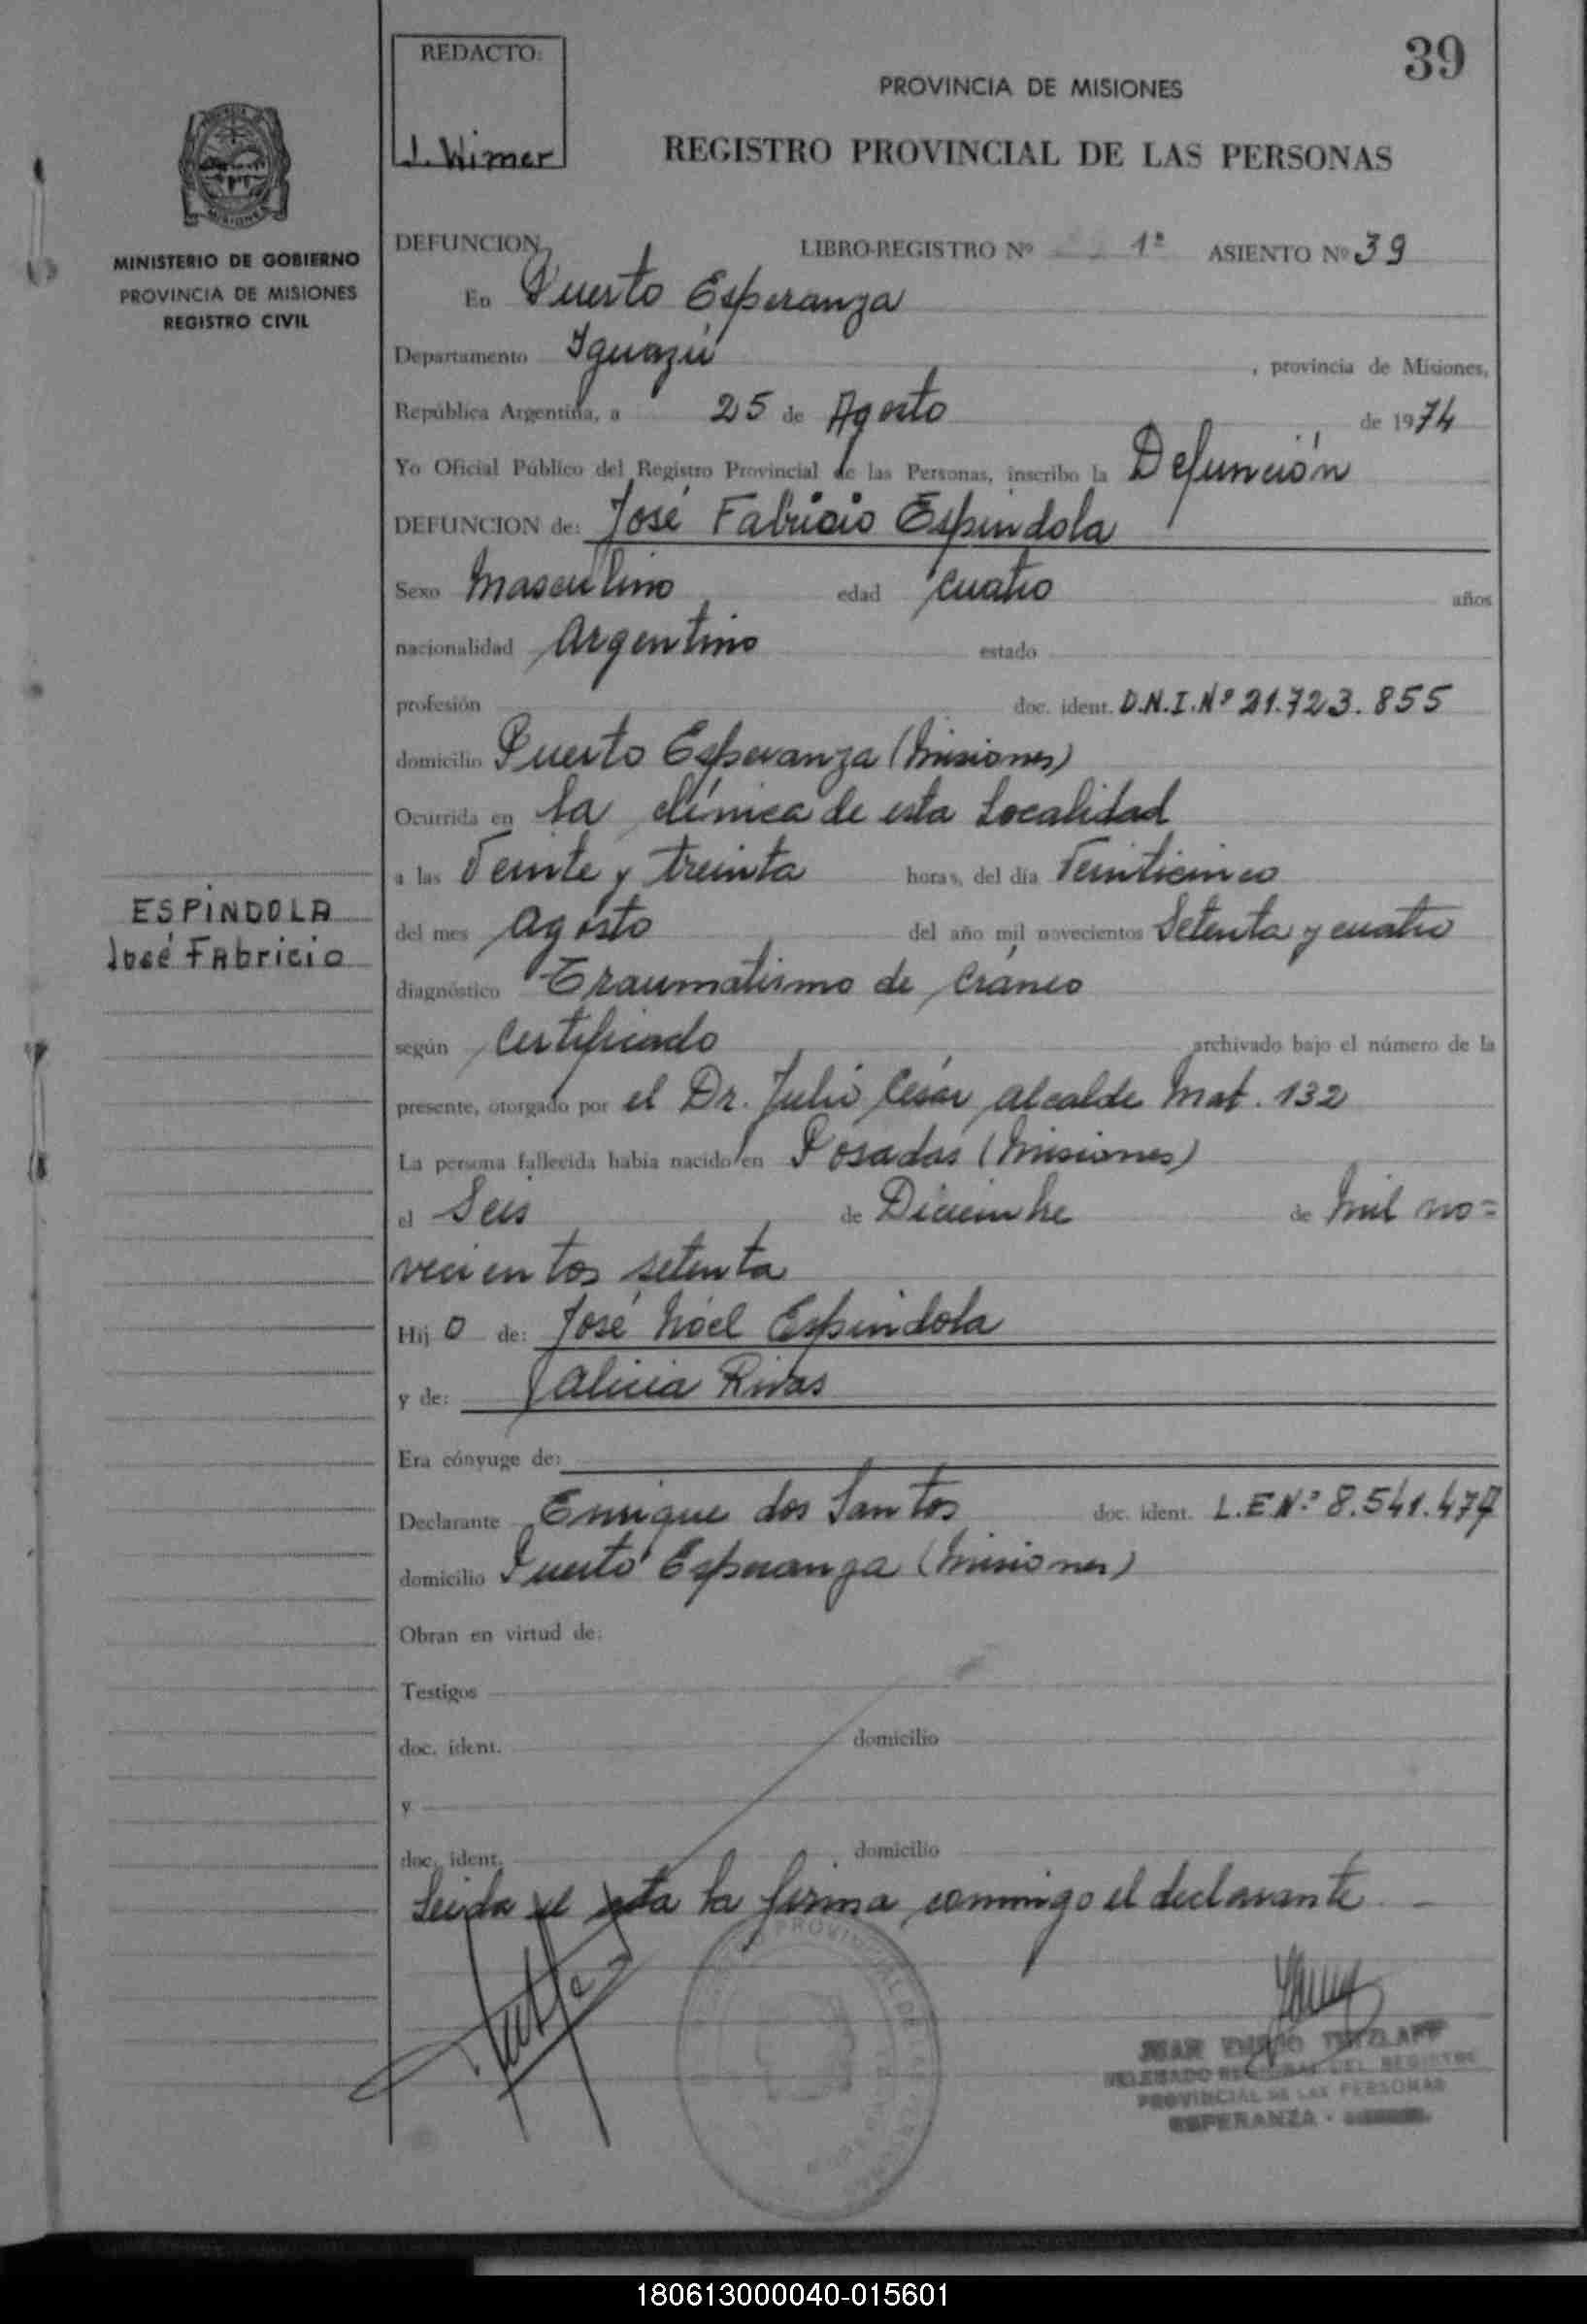 39
REDACTO:
J. Wimer
PROVINCIA DE MISIONES
REGISTRO PROVINCIAL DE LAS PERSONAS
MISIONES
MINISTERIO DE GOBIERNO
PROVINCIA DE MISIONES
REGISTRO CIVIL
DEFUNCION LIBRO-REGISTRO Nº 1º ASIENTO Nº 39
En Puerto Esperanza
Departamento Iguazú , provincia de Misiones,
República Argentina, a 25 de Agosto de 1974
Yo Oficial Público del Registro Provincial de las Personas, inscribo la Defunción
DEFUNCION de: José Fabricio Espindola
Sexo Masculino edad cuatro años
nacionalidad Argentino estado
profesión doc. ident. D.N.I. Nº 21.723.855
domicilio Puerto Esperanza (Misiones)
Ocurrida en la clínica de esta Localidad
a las Veinte y treinta horas, del día Veinticinco
ESPINDOLA
José FAbricio
del mes Agosto del año mil novecientos Setenta y cuatro
diagnóstico Traumatismo de Cráneo
según Certificado archivado bajo el número de la
presente, otorgado por el Dr. Julio César Alcalde Mat. 132
La persona fallecida había nacido en Posadas (Misiones)
el Seis de Diciembre de Mil no=
vecientos setenta
Hij o de: José Noel Espindola
y de: Alicia Rivas
Era cónyuge de:
Declarante Enrique dos Santos doc. ident. L.E Nº 8.541.477
domicilio Puerto Esperanza (Misiones)
Obran en virtud de:
Testigos
doc. ident. domicilio
y
doc. ident. domicilio
Leida el acta la firma conmigo el declarante
DELEGADO REGIONAL DEL REGISTRO
PROVINCIAL DE LAS PERSONAS
ESPERANZA -
180613000040-015601